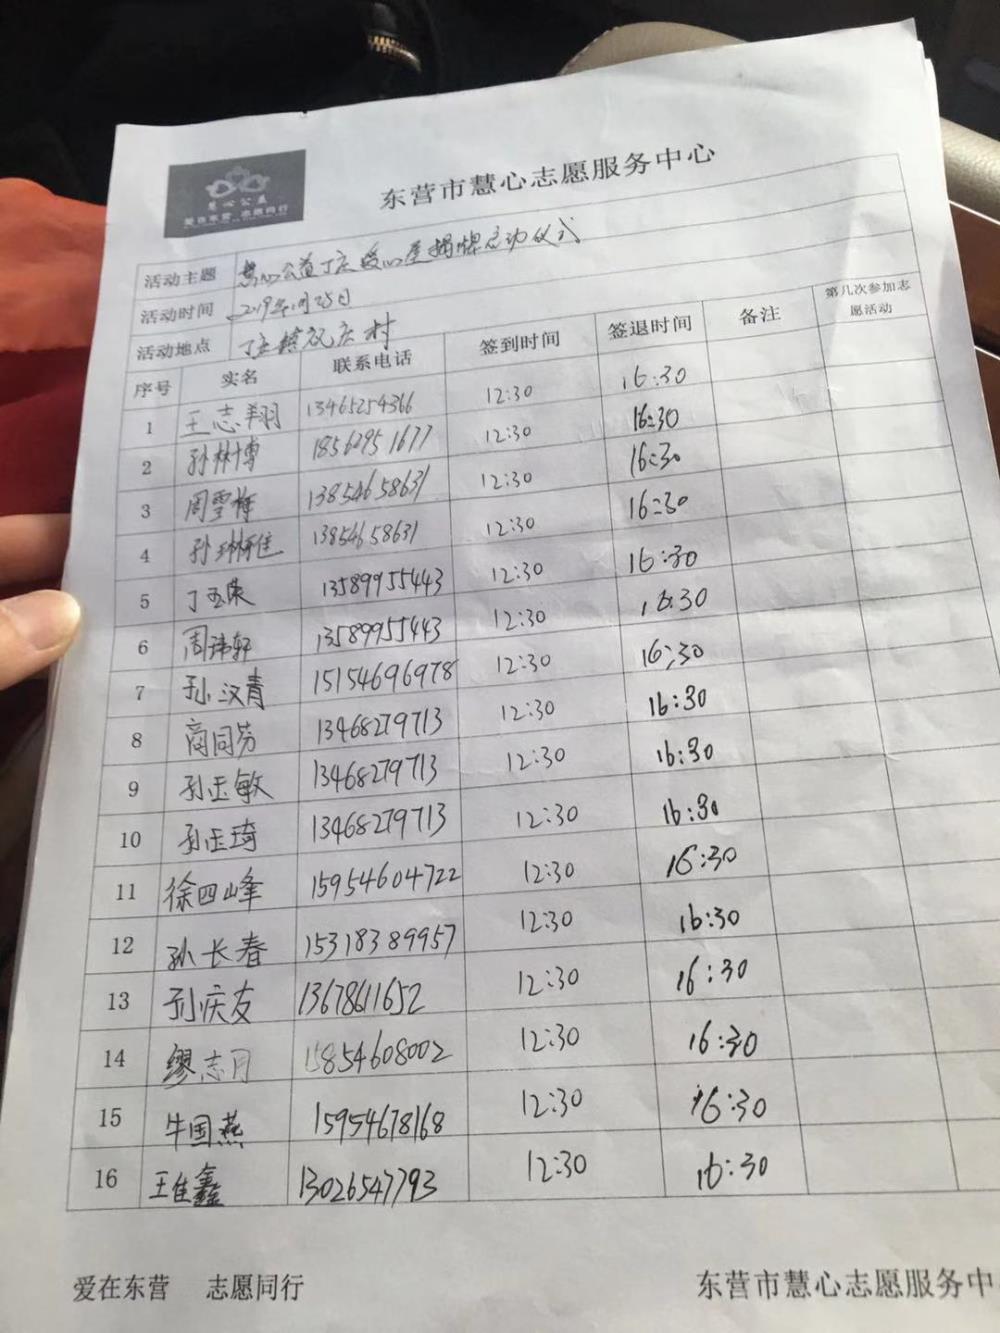 慧心公益
爱在东营 志愿同行
东营市慧心志愿服务中心
活动主题 慧心公益丁庄爱心屋揭牌启动仪式
活动时间 2019年1月25日
活动地点 丁庄镇 庄村
序号 实名 联系电话 签到时间 签退时间 备注 第几次参加志愿活动
1 王志翔 13465254366 12:30 16:30
2 孙林博 18562951677 12:30 16:30
3 周雪梅 13854658631 12:30 16:30
4 孙琳雅佳 13854658631 12:30 16:30
5 丁玉荣 13589955443 12:30 16:30
6 周玮轩 13589955443 12:30 16:30
7 孙汉青 15154696978 12:30 16:30
8 商同芳 13468279713 12:30 16:30
9 孙玉敏 13468279713 12:30 16:30
10 孙玉琦 13468279713 12:30 16:30
11 徐四峰 15954604722 12:30 16:30
12 孙长春 15318389957 12:30 16:30
13 孙庆友 13678611652 12:30 16:30
14 缪志月 15854608002 12:30 16:30
15 牛国燕 15954678168 12:30 16:30
16 王佳鑫 13026547793 12:30 16:30
爱在东营 志愿同行 东营市慧心志愿服务中